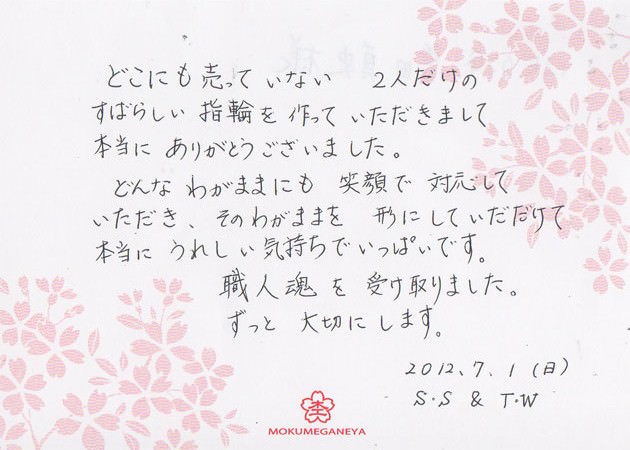 どこにも売っていない 2人だけの
すばらしい指輪を作っていただきまして
本当にありがとうございました。
どんなわがままにも 笑顔で対応して
いただき、そのわがままを 形にしていただけて
本当にうれしい気持ちでいっぱいです。
職人魂を受け取りました。
ずっと大切にします。
2012.7.1(日)
S.S & T.W
MOKUMEGANEYA